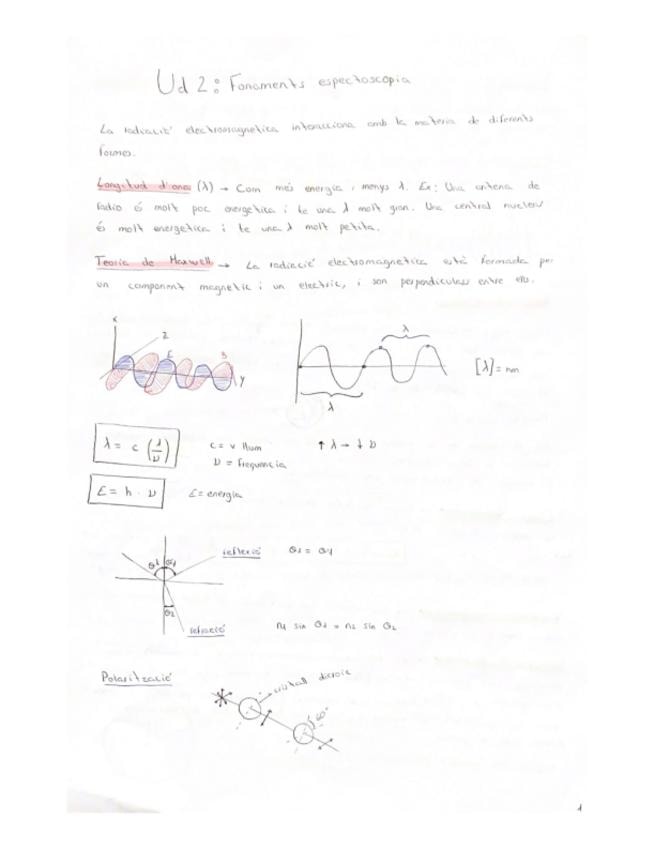 Ud 2: Fonaments espectoscopia
La radiació electromagnetica interacciona amb la materia de diferents
formes.
Longitud d'ona (λ) → Com més energia, menys λ. Ex: Una antena de
radio é molt poc energetica i te una λ molt gran. Una central nuclear
é molt energetica i te una λ molt petita.
Teoria de Maxwell → La radiació electromagnetica està formada per
un component magnetic i un electric, i son perpendiculars entre ells.
x
z
E
B
y
λ
λ
[λ] = nm
λ = c (1/ν)
c = v llum
ν = frequencia
↑ λ → ↓ ν
E = h · ν
E = energia
θ1 θ1
reflexió
θ1 = θ1
θ2
refracció
n1 sin θ1 = n2 sin θ2
Polarització
cristall dicroic
60°
1